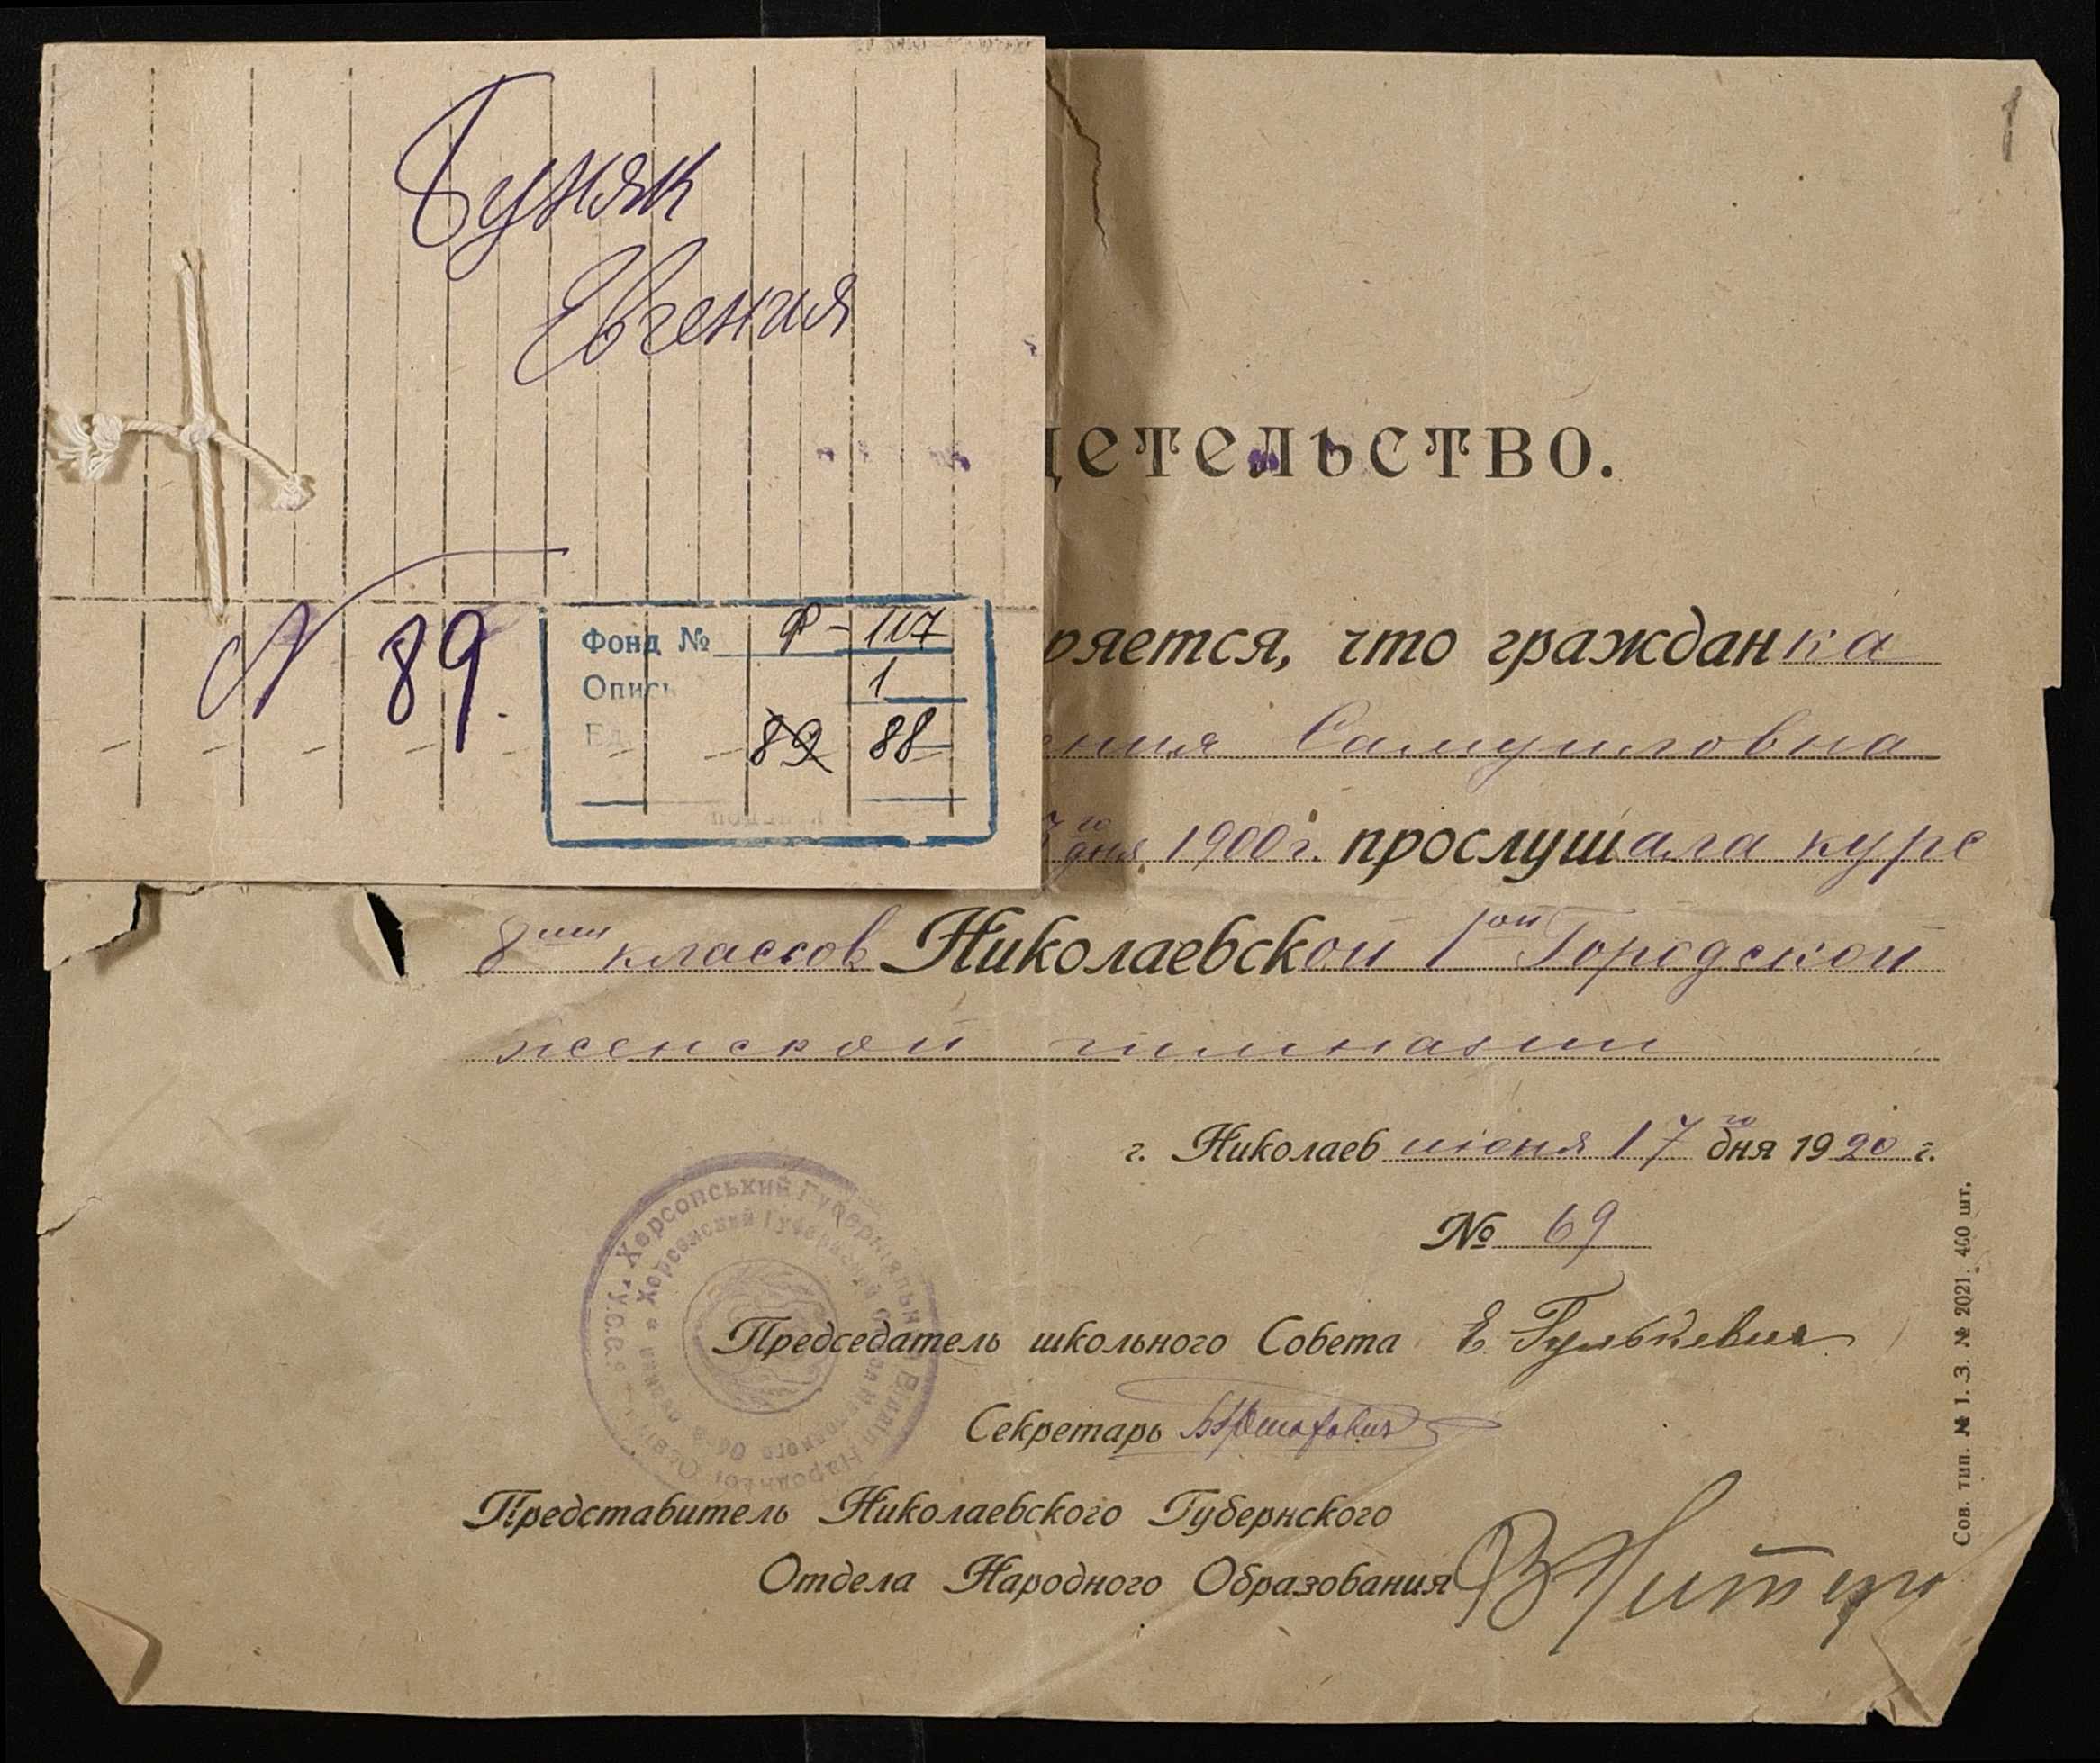 Буняк
Евгения
N 89.
Фонд № Ф-117
Опись 1
Ед 89 88
1
детельство.
ряется, что гражданка
ения Самуиловна
го дня 1900 г. прослушала курс
8ми классов Николаевской 1ой Городской
женской гимназии
г. Николаев июня 17го дня 1920 г.
№ 69
Председатель школьного Совета Е. Гулькевич
Секретарь
Представитель Николаевского Губернского
Отдела Народного Образования
Сов. тип. № 1. З. № 2021. 400 шт.
Херсонський Губернїяльн Виддїл Народньої Освіти У.С.
Херсонский Губернский Отдел Народного